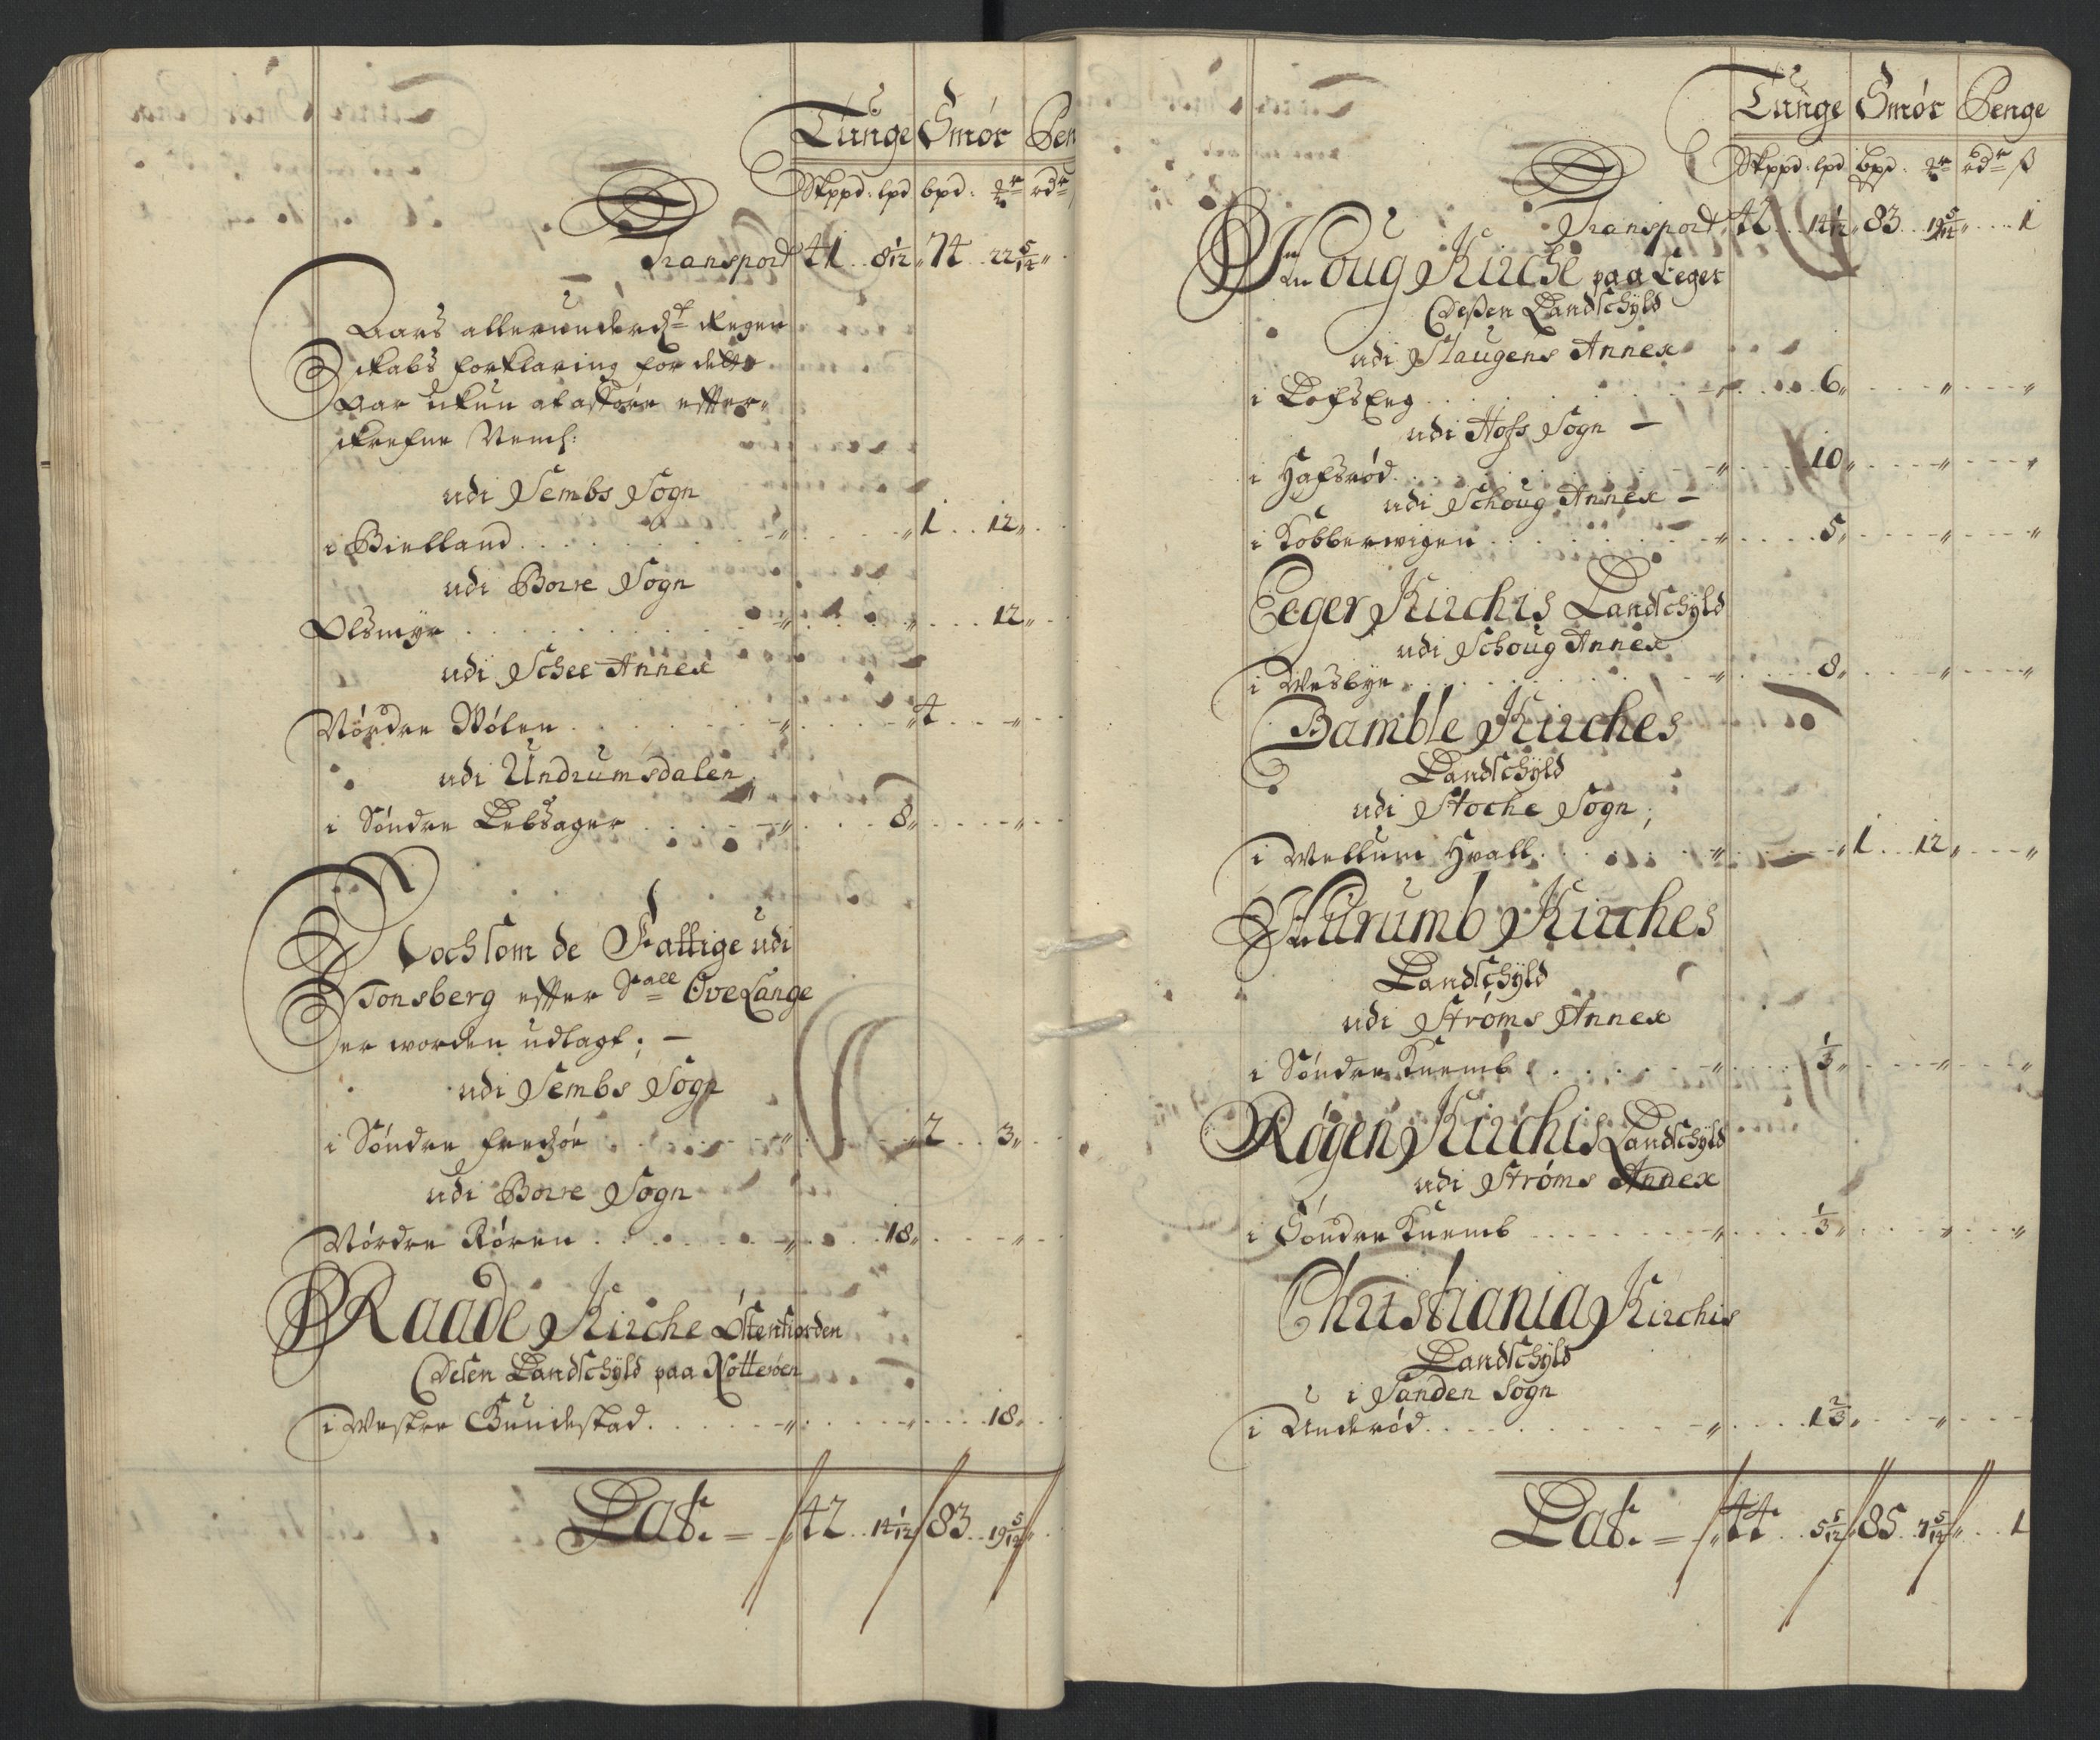 Tunge Smør Pen
Skppd: lpd bpd:
Transport 41 .. 8 1/12 „ 74 .. 22 5/12 „
Aars allerunderd: Regen
skabs forklaring for dette
Aar
Neml:
udi Sembs Sogn
i Bielland . . . „ . . „ 1 .. 12 „
udi Borre Sogn
Olsmyr . . . „ . . „ . . 12 „
udi Schee Annex
Nórdre Wólen . . . „ . . „ 4 . . „
udi Undrumsdalen
i Sóndre Lebsager . . . „ . . 8 „ . . „
och som de Fattige udi
Tonsberg effter Sall Ove Lange
er worden udlagt; —
udi Sembs Sogn
i Sóndre . . . „ . . „ 2 .. 3 „
udi Borre Sogn
Nórdre Róren . . . „ . . 18 „ . . „
Raade Kirche Østenfiorden
Desen Landschÿld paa Nötterøen
i Westre Bundestad . . . „ . . „ . . 18 „
Lat. = „ 42 .. 14 1/12 / 83 .. 19 5/12 „
Tunge Smór Penge
Skppd: lpd bpd: rdr ß
Transport 42 .. 14 1/12 „ 83 .. 19 5/12 „ . . 1
Houg Kirche paa Eeger
Deßen Landschÿld
udi Annex
i . . . „ . . 6 „ . . „ . . „
udi Hofs Sogn —
i Hafsród . . . „ . . 10 „ . . „ . . „
udi Schoug Annex —
i Kobberwigen . . . „ . . 5 „ . . „ . . „
Eeger Kirchis Landschÿld
udi Schoug Annex
i Wesbÿe . . . „ . . 8 „ . . „ . . „
Bamble Kirches
Landschÿld
udi Stoche Sogn;
i Wellum Hvall . . . „ . . „ 1 .. 12 „ . . „
Hurumb Kirches
Landschÿld
udi Strøms Annex
i Sóndre Knemb . . . „ . . 1/3 „ . . „ . . „
Røgen Kirchis Landschÿld
udi Strøms Annex
i Sóndre Knemb . . . „ . . 1/3 „ . . „ . . „
Christiania Kirchis
Landschÿld
i Sanden Sogn
i Underód . . . „ . . 1 2/3 „ . . „
Lat. = „ 44 .. 5 5/12 „ 85 .. 7 5/12 „ . . 1